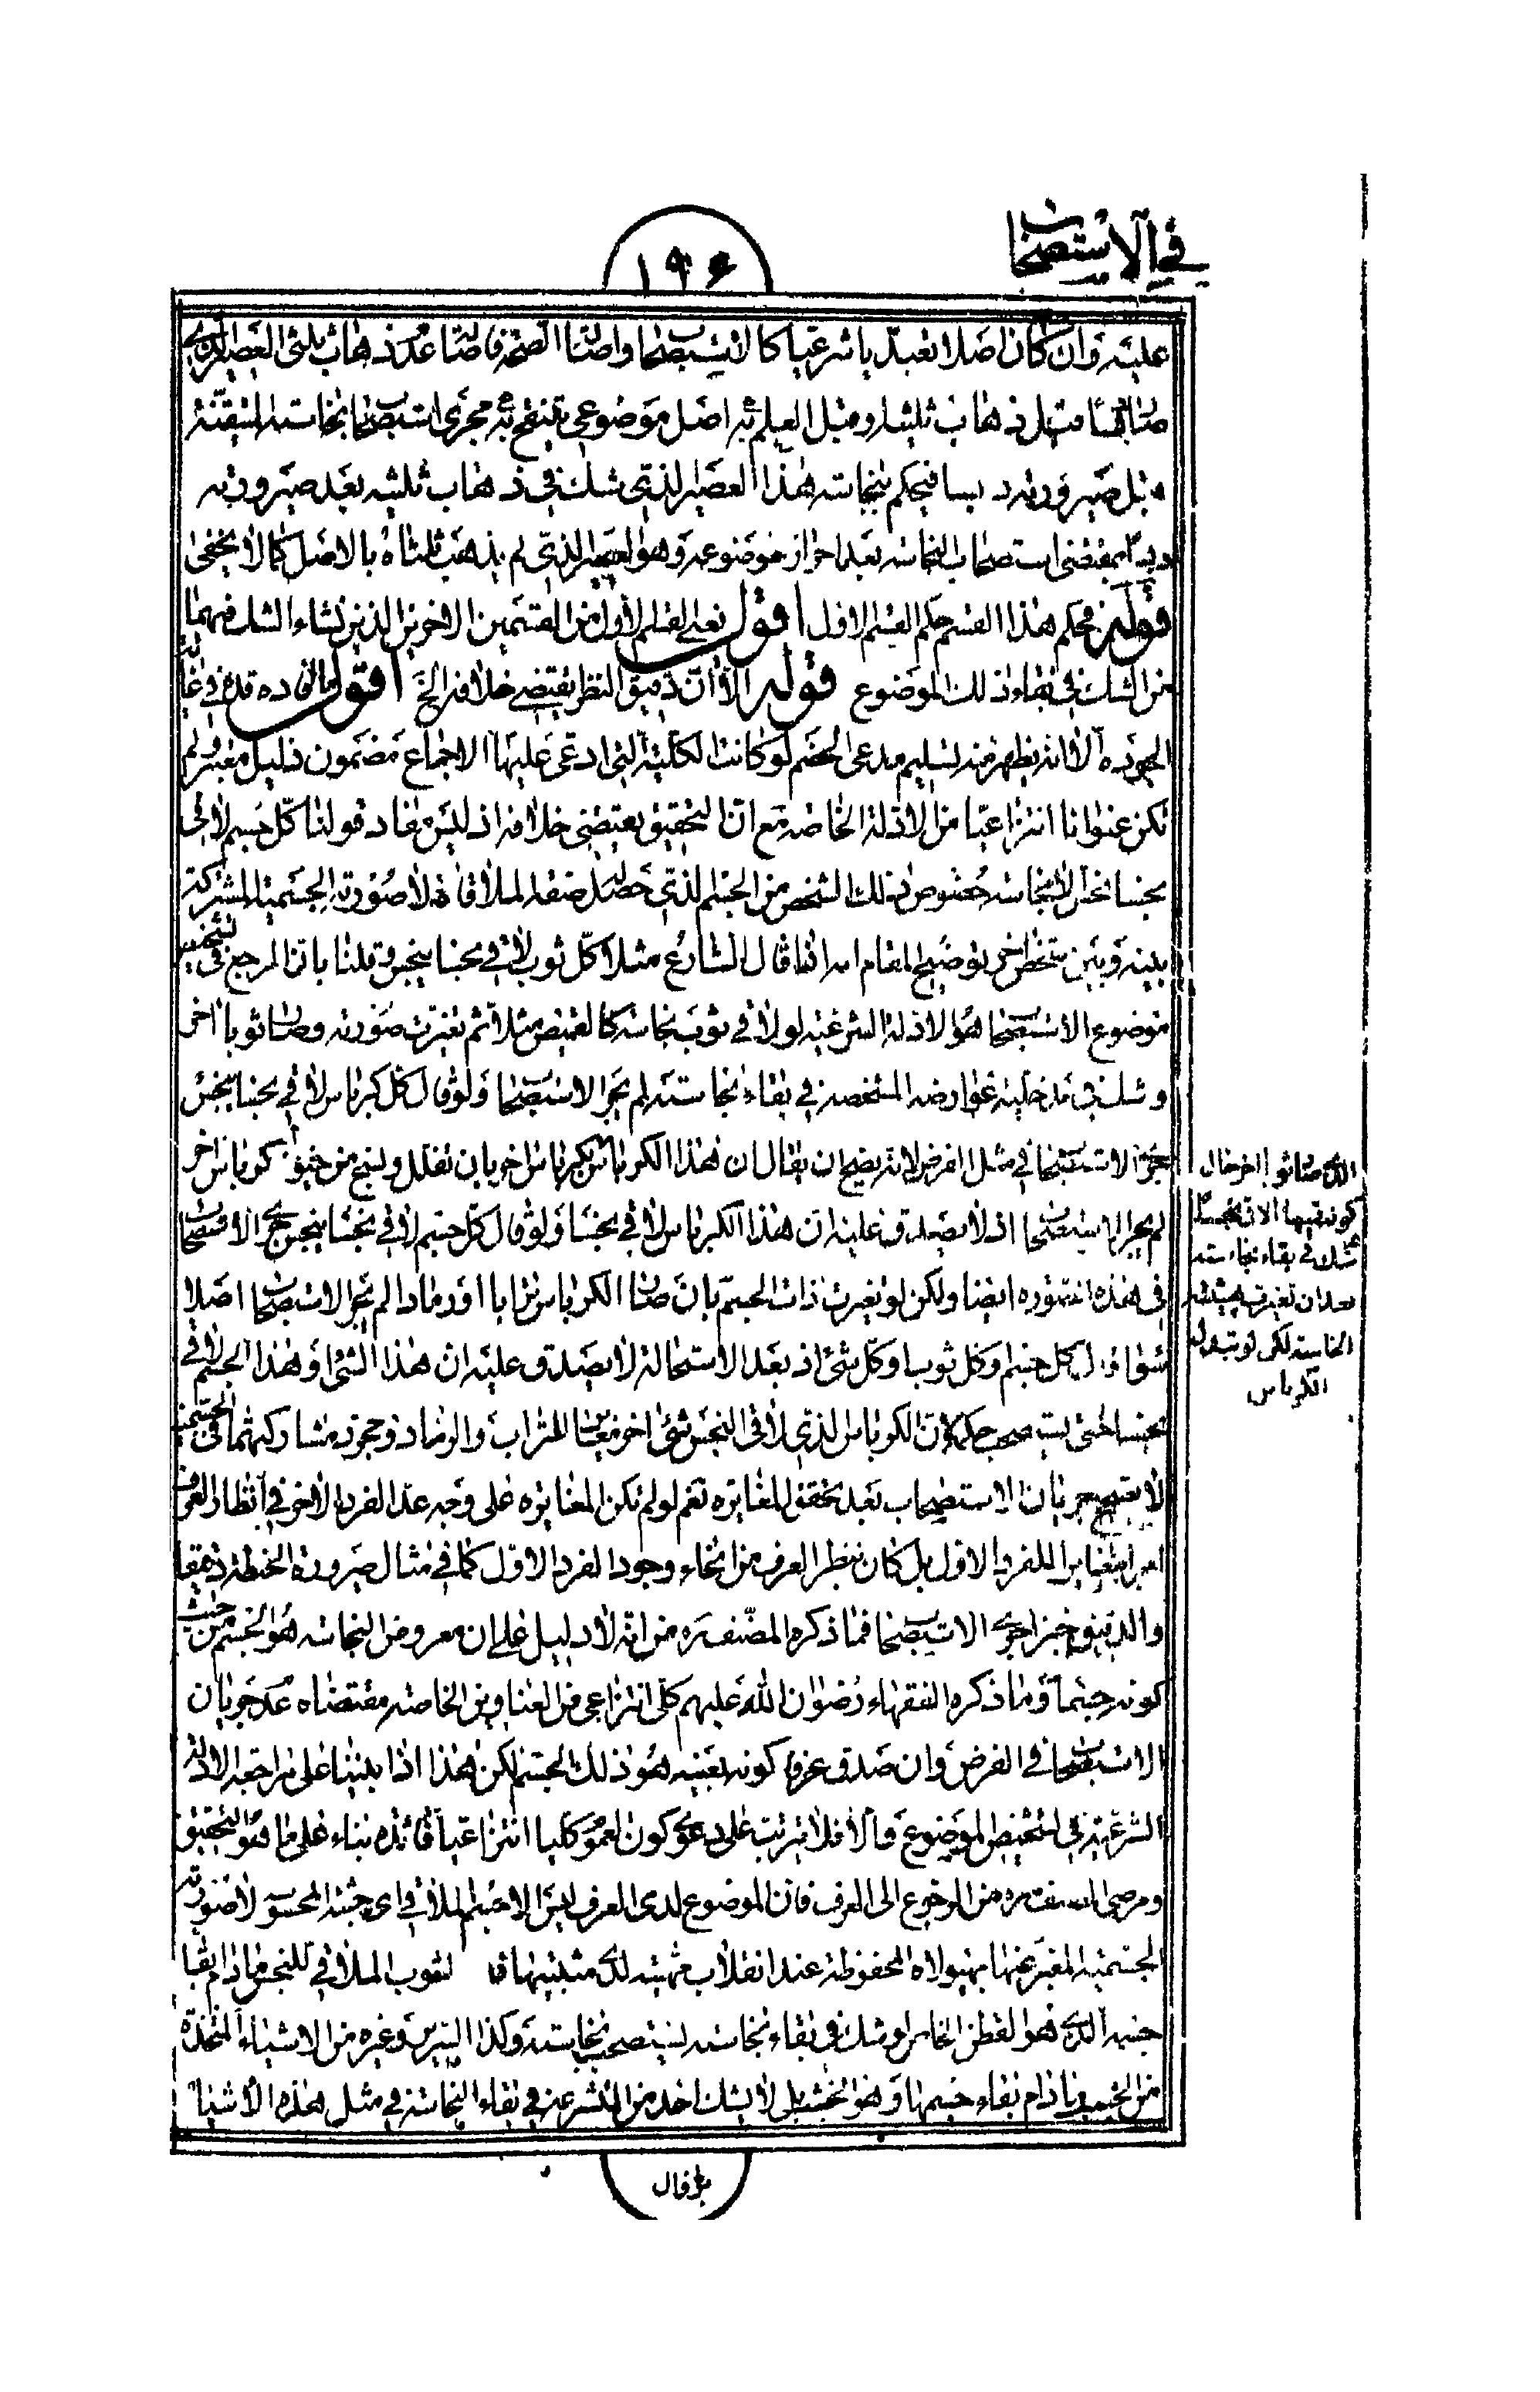 في الاستصحاب
۱۹۶
عليه وان كان اصلا تعبديا شرعيا كالاستصحاب واصالة الصحة فاصالة عدم ذهاب ثلثي العصير الذي
صار دبسا قبل ذهاب ثلثيه وقبل العلم به اصل موضوعي ينقح به مجرى استصحاب نجاسته المتيقنة
قبل صيرورته دبسا فيحكم بنجاسة هذا العصير الذي شك في ذهاب ثلثيه بعد صيرورته
دبسا بمقتضى استصحاب النجاسة بعد احراز موضوعه وهو العصير الذي لم يذهب ثلثاه بالاصل كما لا يخفى
قوله فحكم هذا القسم حكم القسم الاول اقول يعني القسم الاول من القسمين الاخيرين الذين نشاء الشك فيهما
من الشك في بقاء ذلك الموضوع قوله الا ان دقيق النظر يقتضي خلافه الخ اقول ما افاده قده في غاية
الجودة الا انه يظهر منه تسليم مدعى الخصم لو كانت الكلية التي ادعى عليها الاجماع مضمون دليل معتبر ولم
تكن عنوانا انتزاعيا من الادلة الخاصة مع ان التحقيق يقتضي خلافه اذ ليس مفاد قولنا كل جسم لاقى
نجسا نجس الا نجاسة خصوص ذلك الشخص من الجسم الذي حصل منه الملاقاة لا صورته الجسمية المشتركة
بينه وبين شخص اخر توضيح المقام انه اذا قال الشارع مثلا كل ثوب لاقى نجسا ينجس وقلنا بان المرجع في تشخيص
موضوع الاستصحاب هو الادلة الشرعية لو لاقى ثوب نجاسة كالقميص مثلا ثم تغيرت صورته وصار ثوبا اخر
وشك في مدخلية عوارضه المشخصة في بقاء نجاسته لم يجر الاستصحاب ولو قال كل كرباس لاقى نجسا ينجس
جرى الاستصحاب في مثل الفرض لانه يصح ان يقال ان هذا الكرباس بكرباس اخر بان تقلل ونسج من خيوطه كرباس اخر
لم يجر الاستصحاب اذ لا يصدق عليه ان هذا الكرباس لاقى نجسا ولو قال كل جسم لاقى نجسا ينجس جرى الاستصحاب
في هذه الصورة ايضا ولكن لو تغيرت ذات الجسم بان صار الكرباس ترابا او رمادا لم يجر الاستصحاب اصلا
سواء قال كل جسم وكل ثوب او كل شئ اذ بعد الاستحالة لا يصدق عليه ان هذا الشئ او هذا الجسم لاقى
نجسا حتى يستصحب حكمه لان الكرباس الذي لاقى النجس شئ اخر مغاير للتراب والرماد ومجرد مشاركتهما في الجسمية
لا يصحح جريان الاستصحاب بعد تحقق المغايرة نعم لو لم تكن المغايرة على وجه عد الفرد الاخر في انظار العرف
امرا مغايرا للفرد الاول بل كان بنظر العرف من انحاء وجود الفرد الاول كما في مثال صيرورة الحنطة دقيقا
والدقيق خبزا جرى الاستصحاب فما ذكره المصنف ره من انه لا دليل على ان معروض النجاسة هو الجسم من حيث
كونه جسما وما ذكره الفقهاء رضوان الله عليهم كلي انتزاعي من العناوين الخاصة مقتضاه عدم جريان
الاستصحاب في الفرض وان صدق عرفا كونه بعينه هو ذلك الجسم لكن هذا اذا بنينا على مراجعة الادلة
الشرعية في تشخيص الموضوع والا فلا يترتب على دعوى كون العموم كليا انتزاعيا فائدة بناء على ما هو التحقيق
ومرضي المصنف ره من الرجوع الى العرف فان الموضوع لدى العرف ليس الا الجسم الملاقي اي جثته المحسوسة لا صورته
الجسمية المعبر عنها بهيولاه المحفوظة عند انقلاب مهيته لدى مثبتيها فالثوب الملاقي للنجس ما دام بقاء
جسمه الذي هو القطن الخاص لو شك في بقاء نجاسته يستصحب نجاسته وكذا السرير وغيره من الاشياء المتخذة
من الخشب ما دام بقاء جسمها وهو الخشب بل لا يشك احد من المتشرعة في بقاء النجاسة في مثل هذه الاشياء
الذي صار ثوبا اخر حال
كونه قميصا لاقى نجسا
شك في بقاء نجاسته
بعد ان تغيرت هيئته
الخاصة لكن لو تبدل
الكرباس
بل قال